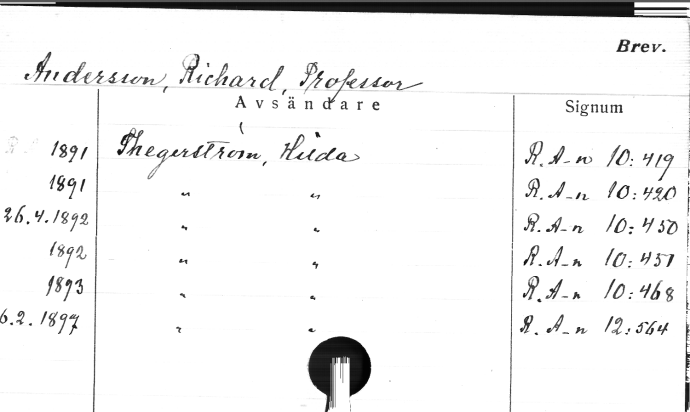 Brev.
Andersson, Richard, Professor
Avsändare Signum
1891 Thegerström, Hilda R. A-n 10:419
1891 " " R. A-n 10:420
26.4.1892 " " R. A-n 10:450
1892 " " R. A-n 10:451
1893 " " R. A-n 10:468
6.2.1897 " " R. A-n 12:564